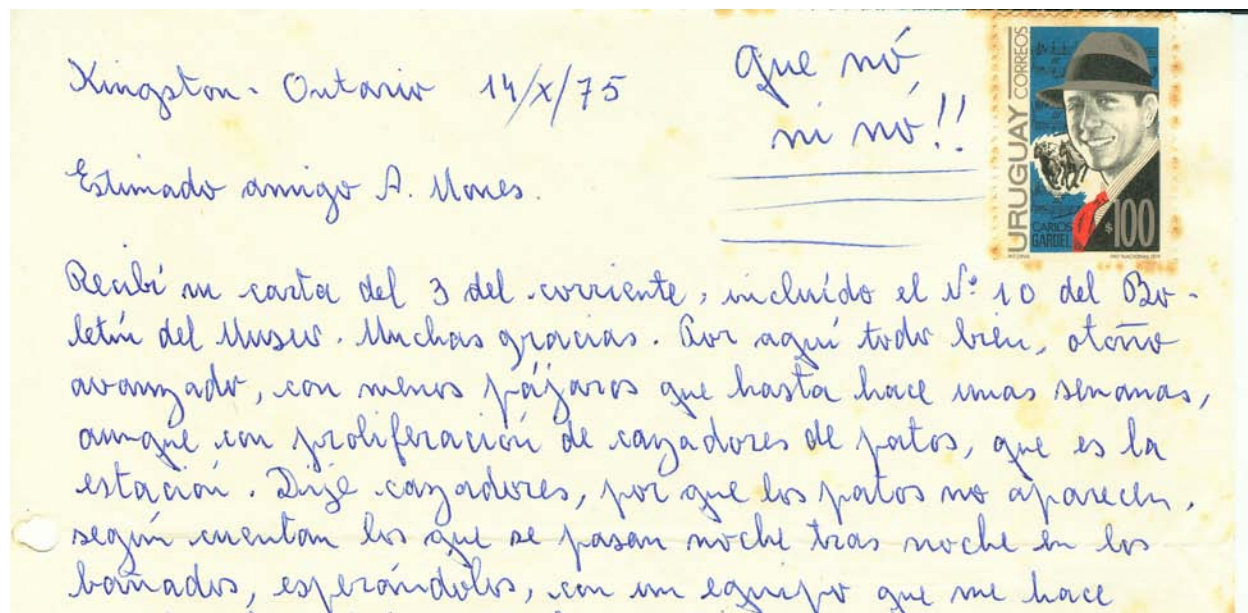 Kingston - Ontario 14/X/75
Que nó,
ni nó!!
URUGUAY CORREOS
CARLOS
GARDEL
$100
Estimado amigo A. Mones.
Recibí su carta del 3 del corriente, incluído el Nº 10 del Bo-
letín del Museo. Muchas gracias. Por aquí todo bien, otoño
avanzado, con menos pájaros que hasta hace unas semanas,
aunque con proliferación de cazadores de patos, que es la
estación. Dije cazadores, por que los patos no aparecen,
según cuentan los que se pasan noche tras noche en los
bañados, esperándolos, con un equipo que me hace